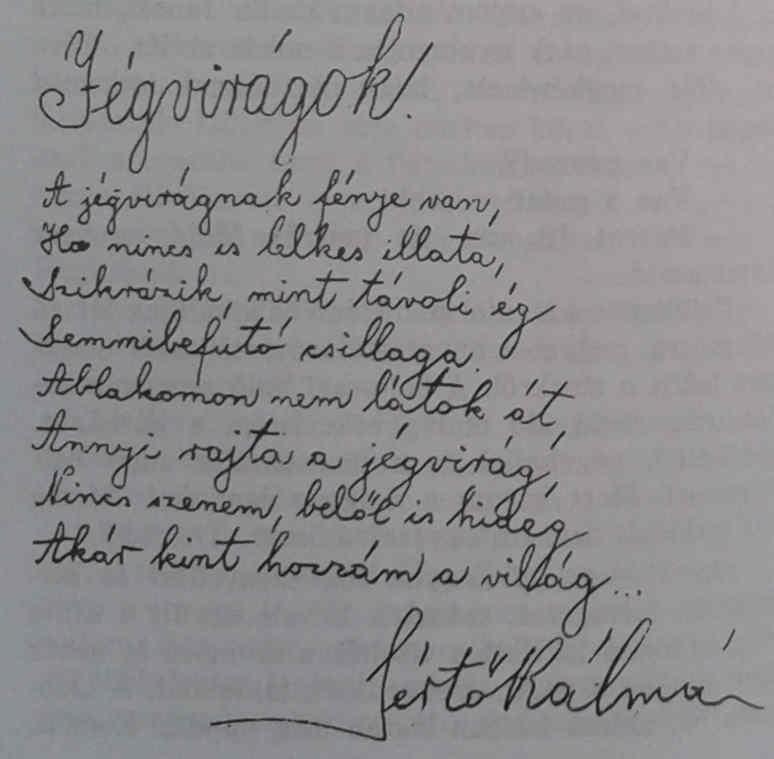 Jégvirágok!
A jégvirágnak fénye van,
Ha nincs is lelkes illata,
Szikrázik, mint távoli ég
Semmibefútó csillaga.
Ablakomon nem látok át,
Annyi rajta a jégvirág,
Nincs szenem, belől is hideg
Akár kint, hozzám a világ...
Sértő Kálmán